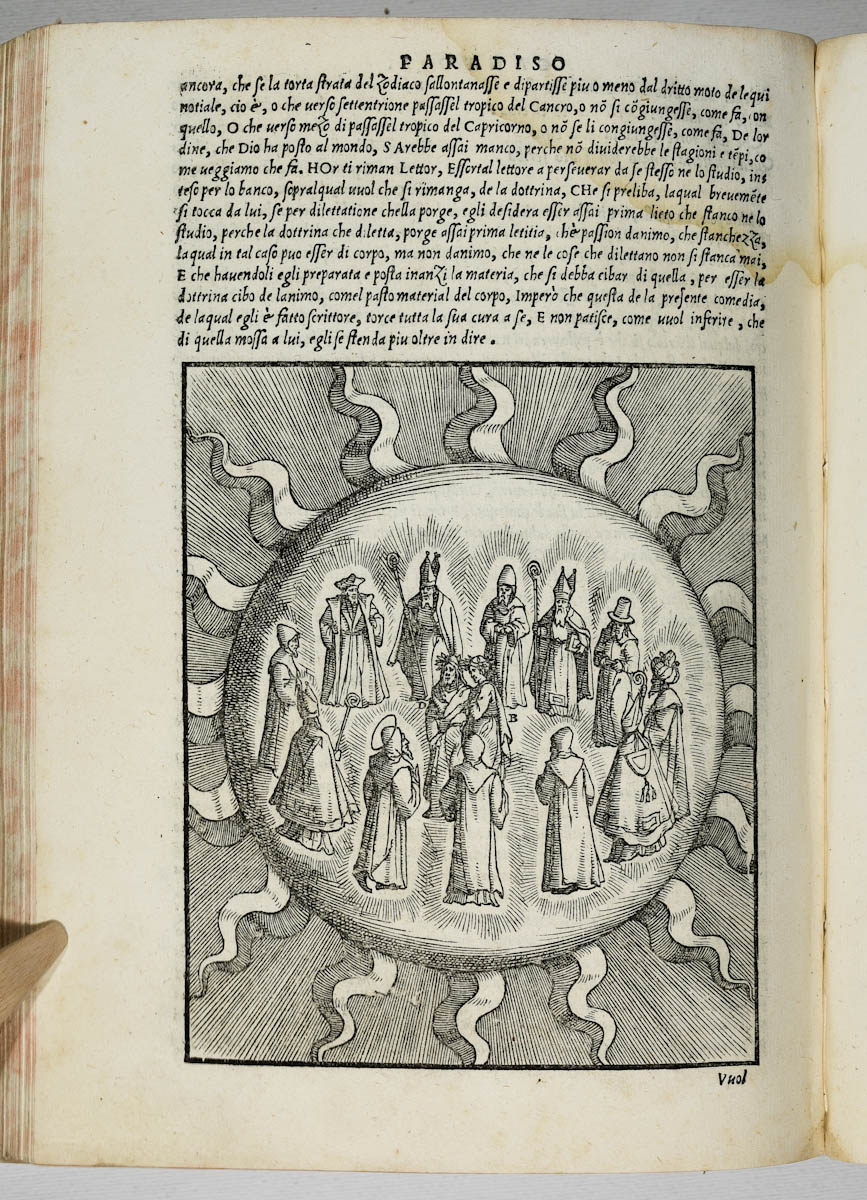 PARADISO
ancora, che se la torta strata del Zodiaco sallontanasse e dipartisse piu o meno dal dritto moto de lequi
notiale, cio è, o che uerso settentrione passassel tropico del Cancro, o nõ si cõgiungesse, come fa, con
quello, O che uerso mezo di passassel tropico del Capricorno, o nõ se li congiungesse, come fa, De lor
dine, che Dio ha posto al mondo, S Arebbe assai manco, perche nõ diuiderebbe le stagioni e tẽpi, co
me ueggiamo che fa. HOr ti riman Lettor, Essortal lettore a perseuerar da se stesso ne lo studio, in
teso per lo banco, sepralqual uuol che si rimanga, de la dottrina, CHe si preliba, laqual breuemẽte
si tocca da lui, se per dilettatione chella porge, egli desidera esser assai prima lieto che stanco ne lo
studio, perche la dottrina che diletta, porge assai prima letitia, chè passion danimo, che stanchezza,
laqual in tal caso puo esser di corpo, ma non danimo, che ne le cose che dilettano non si stanca mai,
E che hauendoli egli preparata e posta inanzi la materia, che si debba cibar di quella, per esser la
dottrina cibo de lanimo, comel pasto material del corpo, Imperò che questa de la presente comedia,
de laqual egli è fatto scrittore, torce tutta la sua cura a se, E non patisce, come uuol inferire, che
di quella mossa a lui, egli se stenda piu oltre in dire.
D
B
Vuol